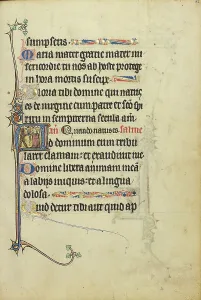 sumpseris
Maria mater gratie mater mi
sericordie tu nos ab hoste protege
in hora mortis suscipe
Gloria tibi domine qui natus
es de virgine cum patre et sco spi
ritu in sempiterna secula am
Quando natus es
Ad dominum cum tribu
larer clamaui et exaudiuit me
Domine libera animam meā
a labijs iniquis et a lingua
dolosa
Quid detur tibi aut quid ap